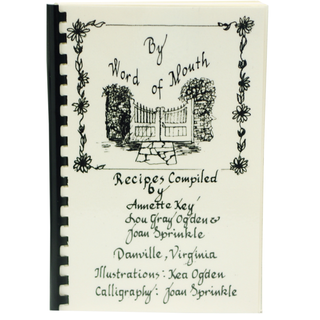 By
Word of Mouth
Recipes Compiled
by
Annette Key
Lou Gray Ogden &
Joan Sprinkle
Danville, Virginia
Illustrations: Kea Ogden
Calligraphy: Joan Sprinkle